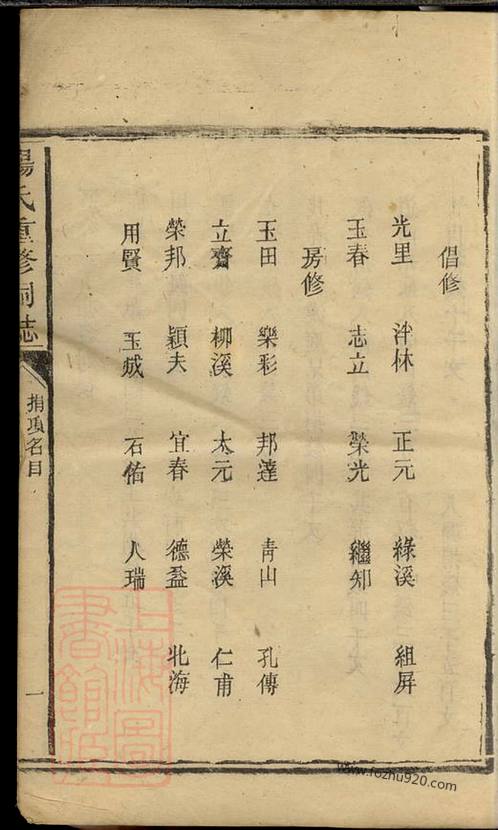 倡修
光里 泮林 正元 綠溪 組屏
玉春 志立 榮光 繼知
房修
玉田 樂彩 邦達 青山 孔傳
立齋 柳溪 太元 榮溪 仁甫
榮邦 穎夫 宜春 德盈 北海
用賢 玉成 石佑 人瑞
楊氏重修祠誌
捐項名目
一
上海圖書館藏
www.fozhu920.com